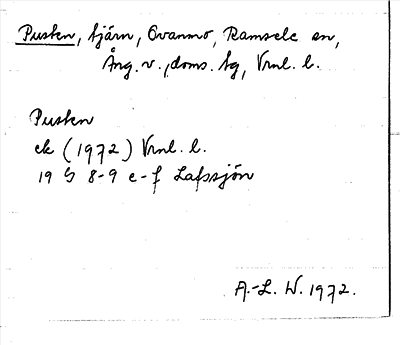 Pusken, tjärn, Ovanmo, Ramsele sn,
Ång. v., doms. tg, Vrnl. l.
Pusken
ek (1972) Vrnl. l.
19 G 8-9 e-f Lafssjön
A.-L. W. 1972.